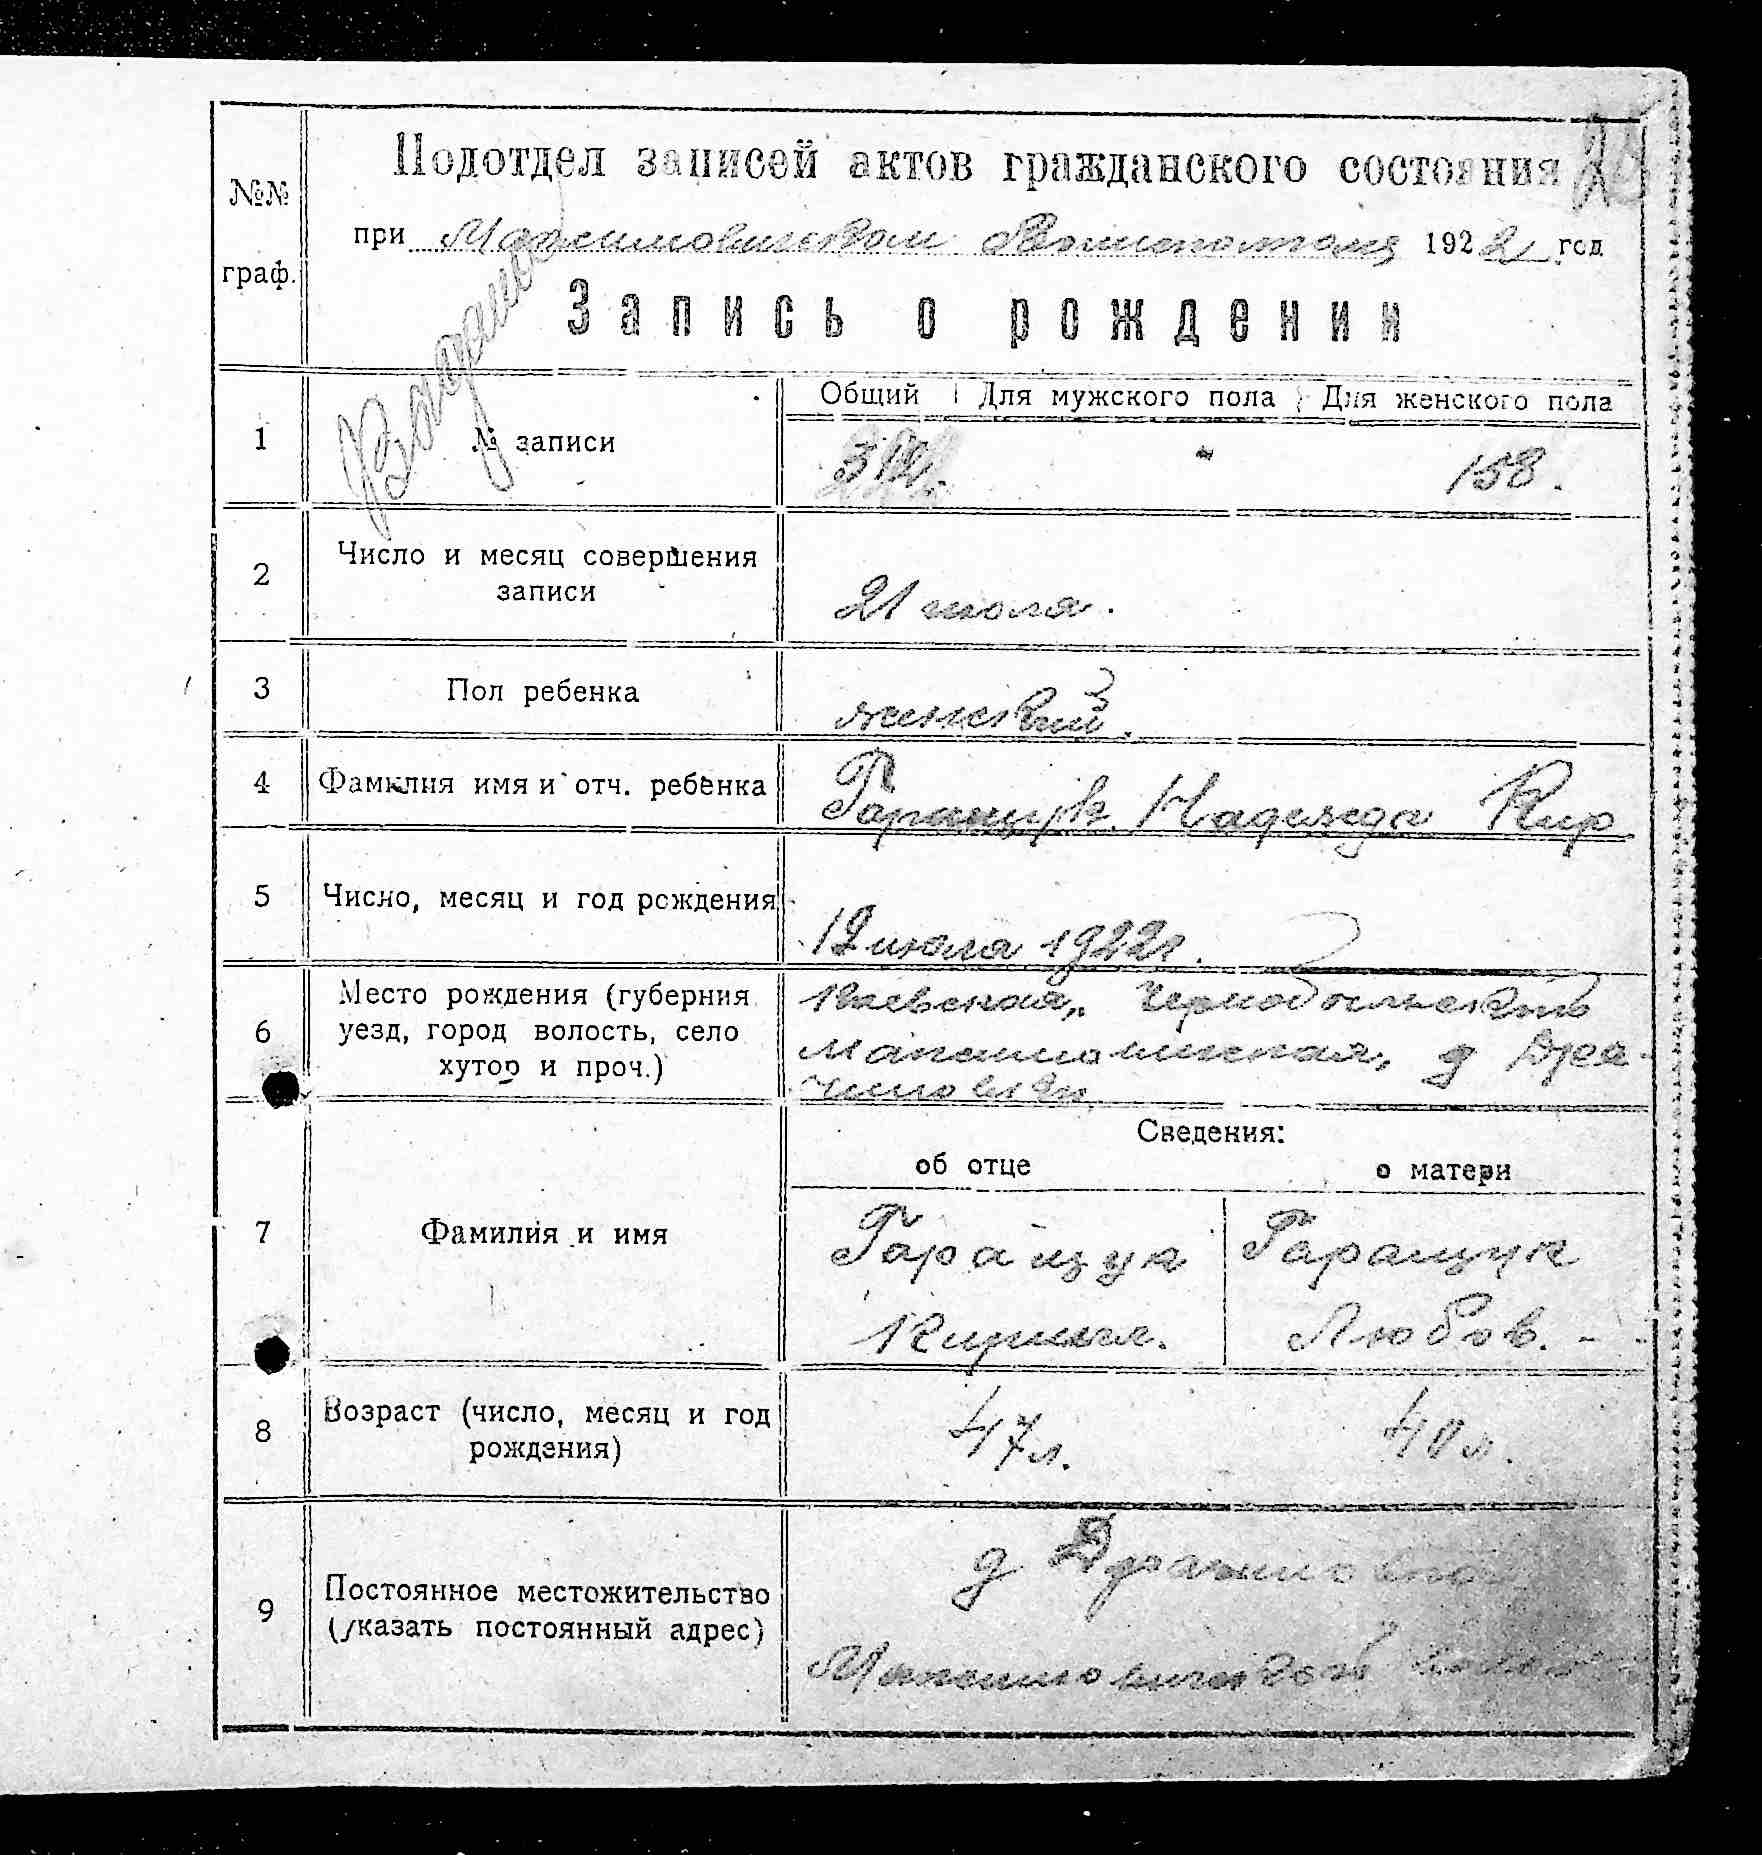 №№
граф.
Подотдел записей актов гражданского состояния
при Максимовическом Волисполкоме 1922 год
Запись о рождении
Общий Для мужского пола Для женского пола
1 № записи " 158.
2 Число и месяц совершения
записи
21 июля.
3 Пол ребенка женский.
4 Фамилия имя и отч. ребенка Гаращук Надежда Кир
5 Число, месяц и год рождения 12 июля 1922г.
6 Место рождения (губерния
уезд, город волость, село
хутор и проч.)
Киевская, Чернобыльский
Максимовическая, д
Сведения:
об отце о матери
7 Фамилия и имя
Гаращук Гаращук
Кирилл. Любов.
8 Возраст (число, месяц и год
рождения)
47 л. 40 л.
9 Постоянное местожительство
(указать постоянный адрес)
д
Максимовической